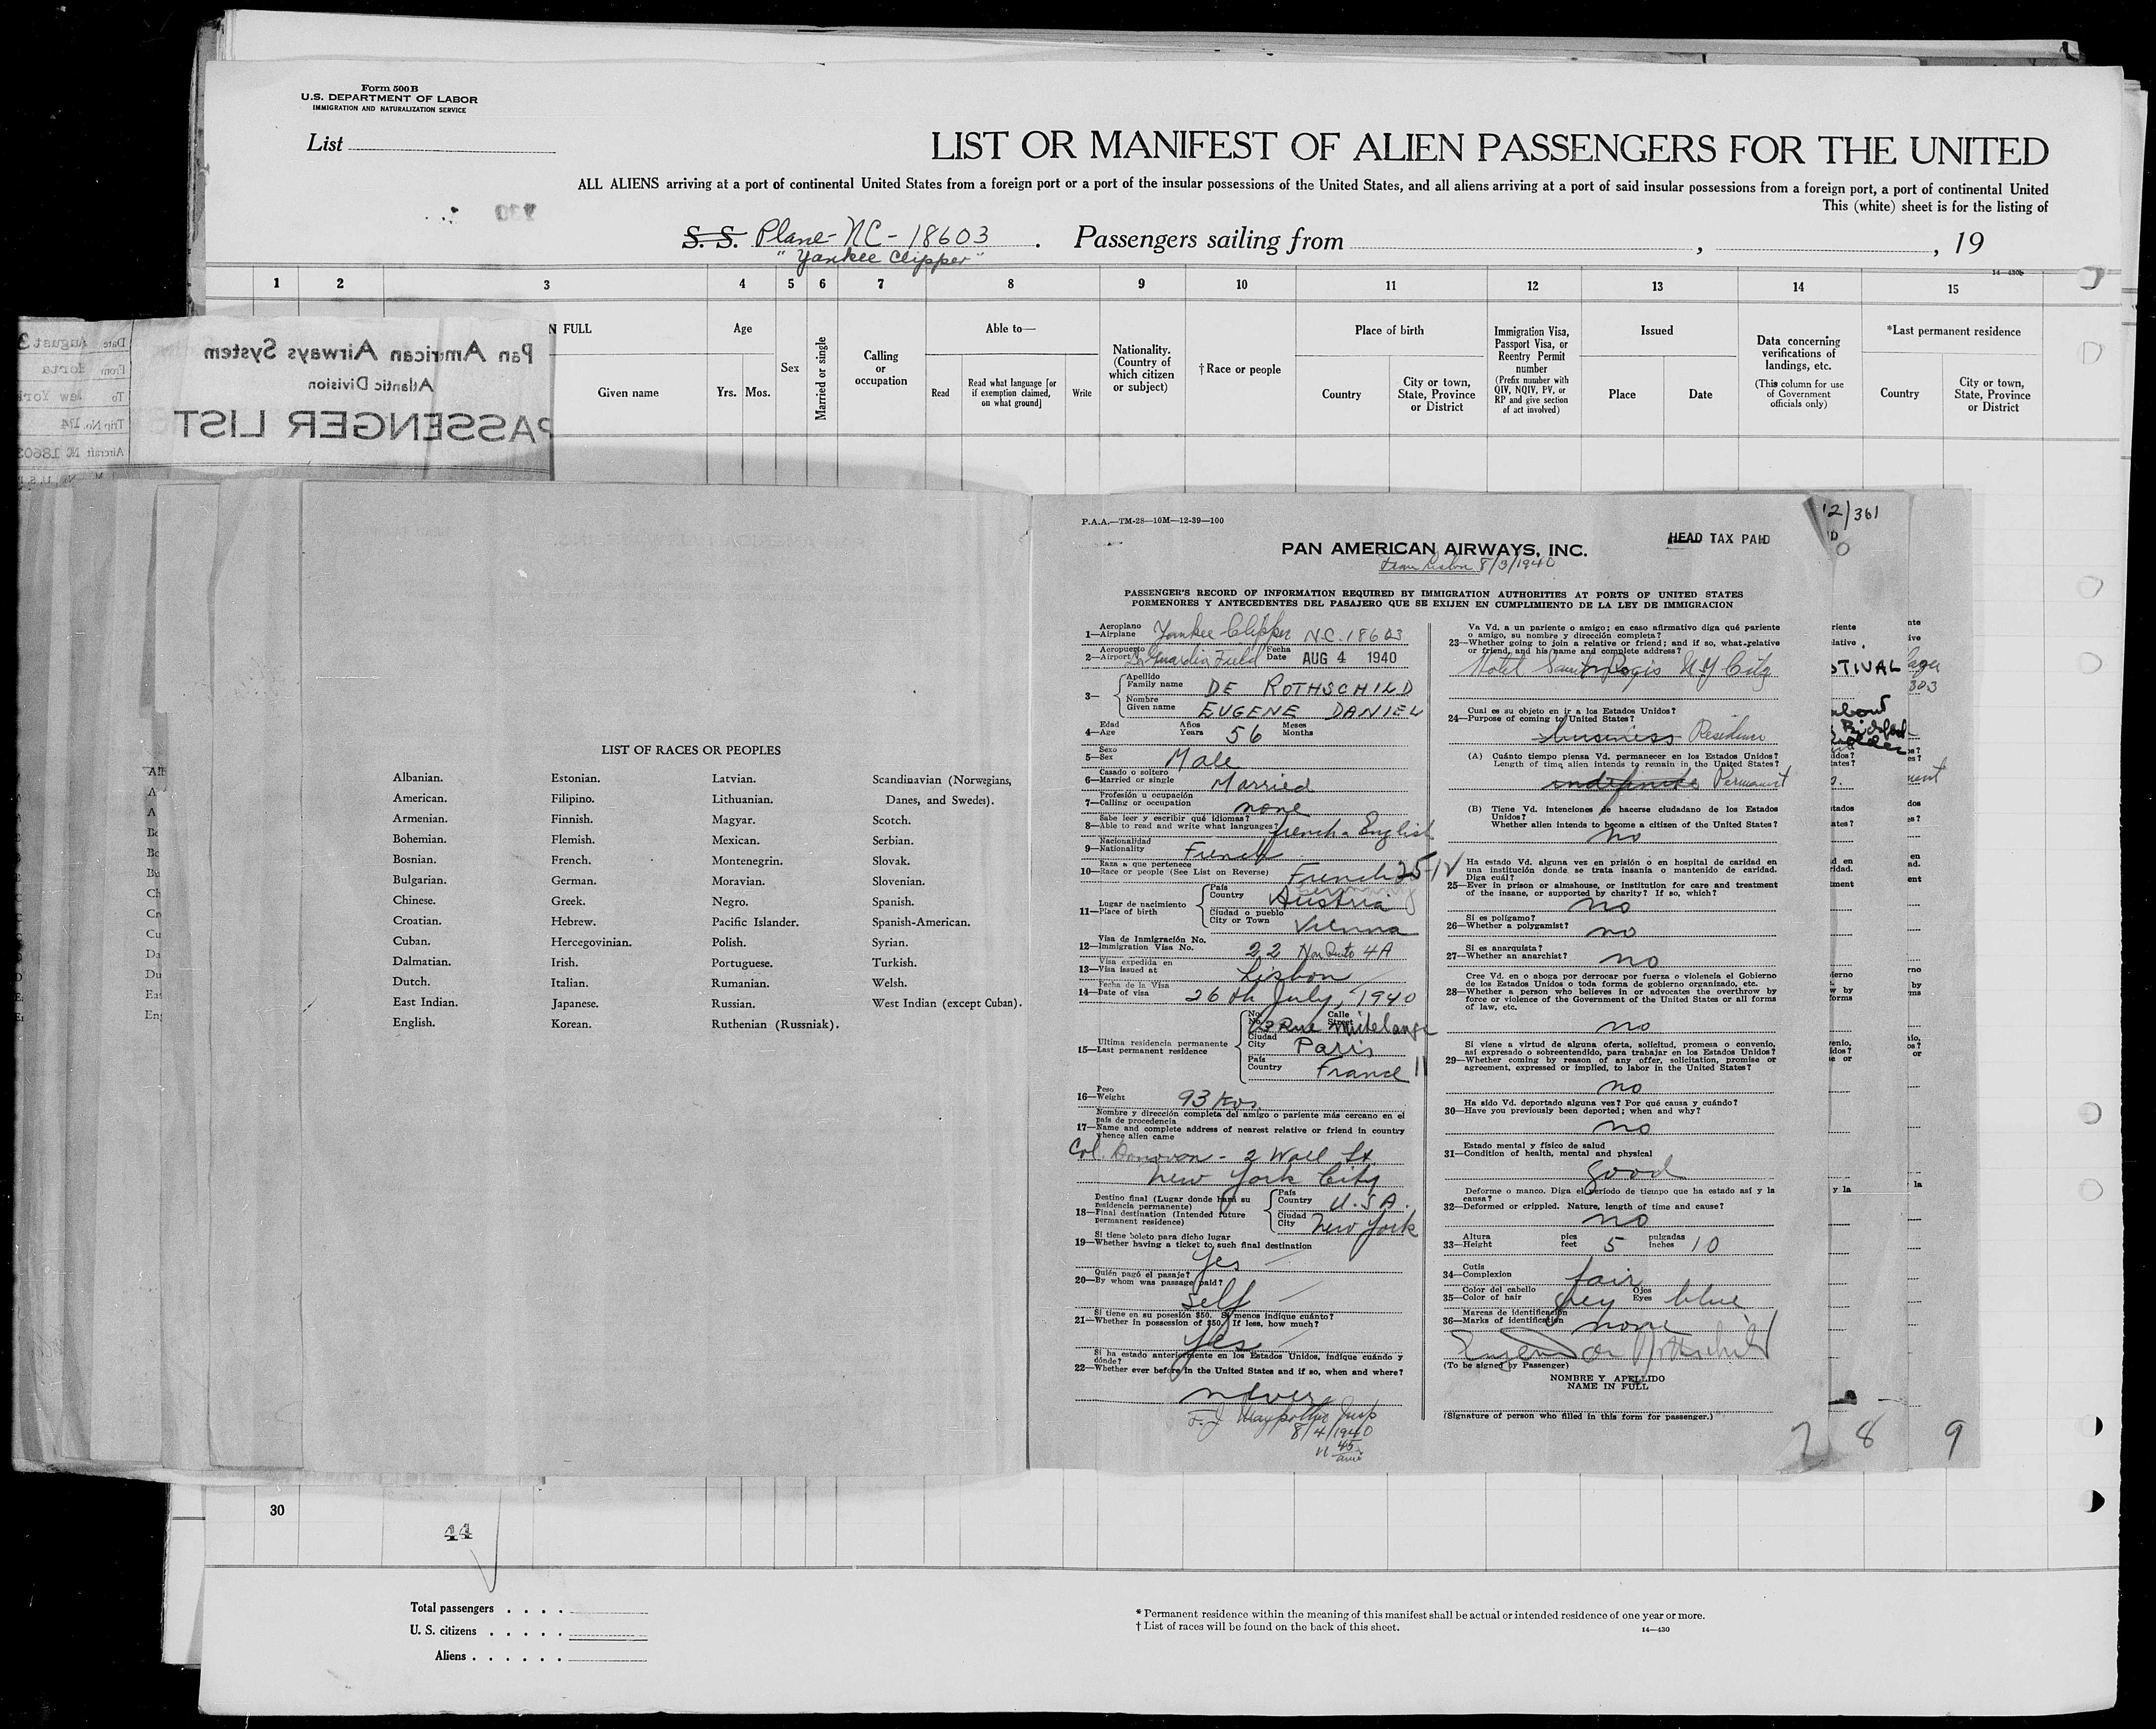 Form 500B
U.S. DEPARTMENT OF LABOR
IMMIGRATION AND NATURALIZATION SERVICE
List
LIST OR MANIFEST OF ALIEN PASSENGERS FOR THE UNITED
ALL ALIENS arriving at a port of continental United States from a foreign port or a port of the insular possessions of the United States, and all aliens arriving at a port of said insular possessions from a foreign port, a port of continental United
This (white) sheet is for the listing of
S. S. Plane-NC-18603 . Passengers sailing from , , 19
"Yankee Clipper"
14-430b
1 2 3 4 5 6 7 8 9 10 11 12 13 14 15
N FULL
Given name
Age
Yrs. Mos.
Sex
Married or single
Calling
or
occupation
Able to—
Read
Read what language [or
if exemption claimed,
on what ground]
Write
Nationality.
(Country of
which citizen
or subject)
†Race or people
Place of birth
Country
City or town,
State, Province
or District
Immigration Visa,
Passport Visa, or
Reentry Permit
number
(Prefix number with
QIV, NQIV, PV, or
RP and give section
of act involved)
Issued
Place
Date
Data concerning
verifications of
landings, etc.
(This column for use
of Government
officials only)
*Last permanent residence
Country
City or town,
State, Province
or District
Pan American Airways System
Atlantic Division
PASSENGER LIST
Date August 3
From Horta
To New York
Trip No. 194
Aircraft NC 18603
LIST OF RACES OR PEOPLES
Albanian.
American.
Armenian.
Bohemian.
Bosnian.
Bulgarian.
Chinese.
Croatian.
Cuban.
Dalmatian.
Dutch.
East Indian.
English.
Estonian.
Filipino.
Finnish.
Flemish.
French.
German.
Greek.
Hebrew.
Hercegovinian.
Irish.
Italian.
Japanese.
Korean.
Latvian.
Lithuanian.
Magyar.
Mexican.
Montenegrin.
Moravian.
Negro.
Pacific Islander.
Polish.
Portuguese.
Rumanian.
Russian.
Ruthenian (Russniak).
Scandinavian (Norwegians,
Danes, and Swedes).
Scotch.
Serbian.
Slovak.
Slovenian.
Spanish.
Spanish-American.
Syrian.
Turkish.
Welsh.
West Indian (except Cuban).
P.A.A.—TM-28—10M—12-39—100
HEAD TAX PAID
PAN AMERICAN AIRWAYS, INC.
from Lisbon 8/3/1940
PASSENGER'S RECORD OF INFORMATION REQUIRED BY IMMIGRATION AUTHORITIES AT PORTS OF UNITED STATES
PORMENORES Y ANTECEDENTES DEL PASAJERO QUE SE EXIJEN EN CUMPLIMIENTO DE LA LEY DE IMMIGRACION
Aeroplano
1—Airplane Yankee Clipper N.C. 18603
Aeropuerto Fecha
2—Airport La Guardia Field Date AUG 4 1940
Apellido
Family name DE ROTHSCHILD
3—
Nombre
Given name EUGENE DANIEL
Edad Años Meses
4—Age Years 56 Months
Sexo
5—Sex Male
Casado o soltero
6—Married or single Married
Profesión u ocupación
7—Calling or occupation none
Sabe leer y escribir qué idiomas?
8—Able to read and write what languages? french - English
Nacionalidad
9—Nationality French
Raza a que pertenece
10—Race or people (See List on Reverse) French 25-IV
País
Country Austria
Lugar de nacimiento
11—Place of birth
Ciudad o pueblo
City or Town Vienna
Visa de Inmigración No.
12—Immigration Visa No. 22 Non Quota 4A
Visa expedida en
13—Visa issued at Lisbon
Fecha de la Visa
14—Date of visa 26 th July, 1940
No. Calle
No. Street Rue
Ciudad
City Paris
Ultima residencia permanente
15—Last permanent residence
País
Country France
Peso
16—Weight 93 Kos
Nombre y dirección completa del amigo o pariente más cercano en el
país de procedencia
17—Name and complete address of nearest relative or friend in country
whence alien came
Col. Donovan - 2 Wall St.
New York City
Destino final (Lugar donde hará su
residencia permanente)
18—Final destination (Intended future
permanent residence)
País
Country U.S.A.
Ciudad
City New York
Si tiene boleto para dicho lugar
19—Whether having a ticket to such final destination
Yes
Quién pagó el pasaje?
20—By whom was passage paid?
Self
Si tiene en su posesión $50. Si menos indique cuánto?
21—Whether in possession of $50. If less, how much?
Yes
Si ha estado anteriormente en los Estados Unidos, indique cuándo y
dónde?
22—Whether ever before in the United States and if so, when and where?
never
8/4/1940
11 45
Va Vd. a un pariente o amigo; en caso afirmativo diga qué pariente
o amigo, su nombre y dirección completa?
23—Whether going to join a relative or friend; and if so, what relative
or friend, and his name and complete address?
Hotel Saint Regis N.Y City
Cual es su objeto en ir a los Estados Unidos?
24—Purpose of coming to United States?
business Residence
(A) Cuánto tiempo piensa Vd. permanecer en los Estados Unidos?
Length of time alien intends to remain in the United States?
indefinite Permanent
(B) Tiene Vd. intenciones de hacerse ciudadano de los Estados
Unidos?
Whether alien intends to become a citizen of the United States?
no
Ha estado Vd. alguna vez en prisión o en hospital de caridad en
una institución donde se trata insania o mantenido de caridad.
Diga cuál?
25—Ever in prison or almshouse, or institution for care and treatment
of the insane, or supported by charity? If so, which?
no
Si es polígamo?
26—Whether a polygamist? no
Si es anarquista?
27—Whether an anarchist? no
Cree Vd. en o aboga por derrocar por fuerza o violencia el Gobierno
de los Estados Unidos o toda forma de gobierno organizado, etc.
28—Whether a person who believes in or advocates the overthrow by
force or violence of the Government of the United States or all forms
of law, etc.
no
Si viene a virtud de alguna oferta, solicitud, promesa o convenio,
así expresado o sobreentendido, para trabajar en los Estados Unidos?
29—Whether coming by reason of any offer, solicitation, promise or
agreement, expressed or implied, to labor in the United States?
no
Ha sido Vd. deportado alguna vez? Por qué causa y cuándo?
30—Have you previously been deported; when and why?
no
Estado mental y físico de salud
31—Condition of health, mental and physical
good
Deforme o manco. Diga el período de tiempo que ha estado así y la
causa?
32—Deformed or crippled. Nature, length of time and cause?
no
Altura pies pulgadas
33—Height feet 5 inches 10
Cutis
34—Complexion fair
Color del cabello Ojos
35—Color of hair grey Eyes blue
Marcas de identificación
36—Marks of identification none
Eugene de Rothschild
(To be signed by Passenger)
NOMBRE Y APELLIDO
NAME IN FULL
(Signature of person who filled in this form for passenger.)
7 8 9
12/361
STIVAL
about
30
44
Total passengers . . . .
U. S. citizens . . . . .
Aliens . . . . . .
* Permanent residence within the meaning of this manifest shall be actual or intended residence of one year or more.
† List of races will be found on the back of this sheet.
14—430